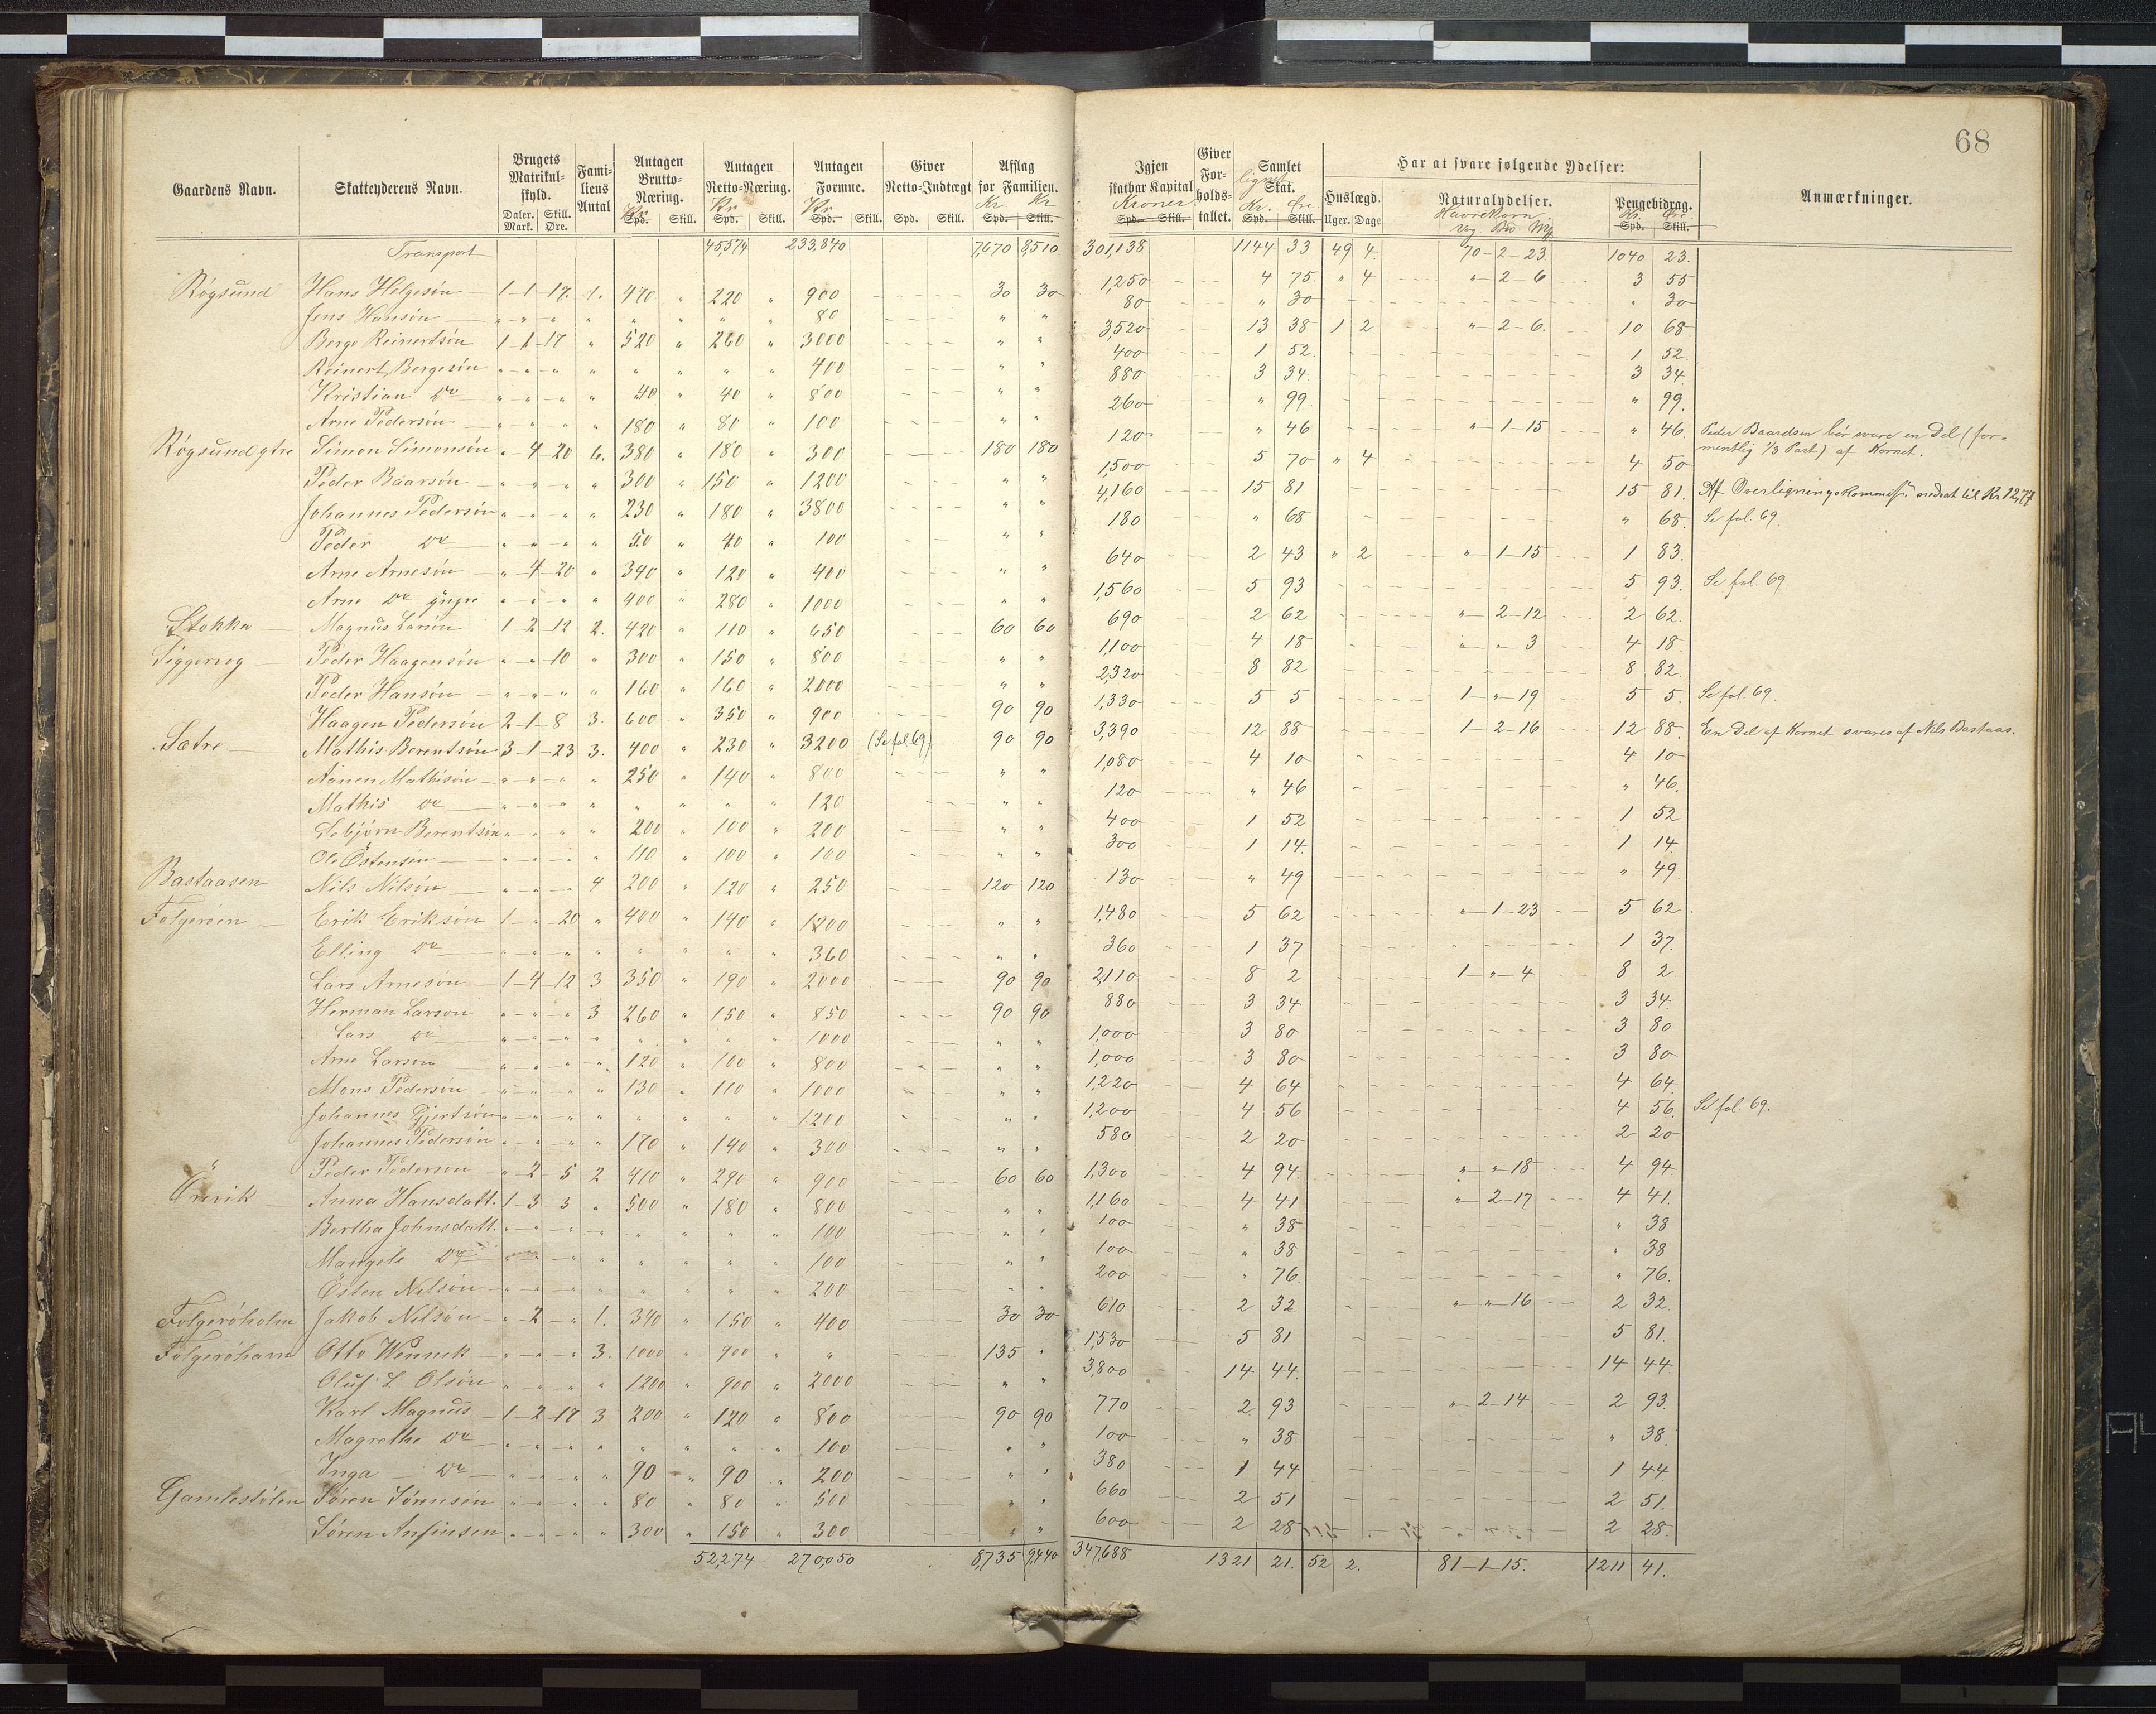 68
Gaardens Navn. Skatteyderens Navn. Brugets Matrikulskyld. Familiens Antal Antagen Brutto-Næring. Antagen Netto-Næring. Antagen Formue. Giver Netto-Indtægt Afslag for Familien. Igjen skatbar Kapital Giver Forholdstallet. Samlet lignet Skat. Har at svare følgende Ydelser: Anmærkninger.
Huslægd. Naturalydelser. Pengebidrag.
Daler. Skill. Kr Kr Kr Kr. Kr Kroner Kr. Øre Havrekorn Kr. Øre
Mark. Øre. Spd. Skill. Spd. Skill. Spd. Skill. Spd. Skill. Spd. Skill. Spd. Skill. Spd. Skill. Uger. Dage Spd. Skill.
Transport 45,574 233,840 7,670 8,510 301,138 1144 33 49 4. 70-2-23 1040 23.
Røgsund Hans Helgesøn 1-1-17. 1. 470 " 220 " 900 30 30 1,250 4 75. " 4 "-2-6 3 55
Jens Hansøn " " " " " " " " 80 " " 80 " 30 " 30
Berge Reinertsøn 1-1-17 " 520 " 260 " 3000 " " 3,520 13 38 1 2 "-2-6. 10 68
Reinert Bergesøn " " " " " " " " 400 " " 400 1 52. 1 52.
Kristian Do " " " " 40 " 40 " 800 " " 880 3 34. 3 34.
Arne Pedersøn " " " " 180 " 80 " 100 " " 260 " 99. " 99.
Røgsund ytre Simon Simonsøn "-4-20 6. 380 " 180 " 300 180 180 120 " 46 "-1-15 " 46. Peder Baardsen bør svare en Del (formentlig 1/3 Part) af Kornet.
Peder Baarsøn " " " " 300 " 150 " 1200 " " 1,500 5 70 " 4 4 50
Johannes Pedersøn " " " " 230 " 180 " 3800 " " 4,160 15 81 15 81. Af Overligningskommissn. nedsat til Kr. 12,77
Peder Do " " " " 50 " 40 " 100 " " 180 " 68 " 68. Se fol. 69.
Arne Arnesøn "-4-20 " 340 " 120 " 400 " " 640 2 43 " 2 "-1-15 1 83.
Arne Do yngre " " " " 400 " 280 " 1000 " " 1,560 5 93 5 93. Se fol. 69
Stokka Magnus Larsøn 1-2-12 2. 420 " 110 " 650 60 60 690 2 62 "-2-12 2 62.
Siggervog Peder Haagensøn " "-10 " 300 " 150 " 800 " " 1,100 4 18 " " 3 4 18.
Peder Hansøn " " " " 160 " 160 " 2000 " " 2,320 8 82 8 82.
Haagen Pedersøn 2-1-8 3. 600 " 350 " 900 90 90 1,330 5 5 1-"-19 5 5. Se fol. 69.
Sætre Mathis Berentsøn 3-1-23 3. 400 " 230 " 3200 (Se fol 69) 90 90 3,390 12 88 1-2-16 12 88. En Del af Kornet svares af Nils Bastaas.
Aanen Mathisøn " " " " 250 " 140 " 800 " " 1,080 4 10 4 10
Mathis Do " " " " " " " " 120 " " 120 " 46 " 46.
Sebjørn Berentsøn " " " " 200 " 100 " 200 " " 400 1 52 1 52
Ole Östensøn " " " " 110 " 100 " 100 " " 300 1 14. 1 14
Bastaasen Nils Nilsøn " " " 4 200 " 120 " 250 120 120 130 " 49 " 49
Folgerøen Erik Eriksøn 1-"-20 " 400 " 140 " 1200 " " 1,480 5 62 "-1-23 5 62.
Elling Do " " " " " " " " 360 " " 360 1 37 1 37.
Lars Arnesøn 1-4-12 3 350 " 190 " 2000 90 90 2,110 8 2 1-"-4 8 2.
Herman Larson " " " 3 260 " 150 " 850 90 90 880 3 34 3 34.
Lars Do " " " " " " " " 1000 " " 1,000 3 80 3 80
Arne Larson " " " " 120 " 100 " 800 " " 1,000 3 80 3 80
Mons Pedersøn " " " " 130 " 110 " 1000 " " 1,220 4 64 4 64.
Johannes Gjertsøn " " " " " " " " 1200 " " 1,200 4 56 4 56. Se fol. 69.
Johannes Pedersøn " " " " 170 " 140 " 300 " " 580 2 20 2 20
" Peder Pederson "-2-5 2 410 " 290 " 900 60 60 1,300 4 94. " "-18 4 94.
Anna Hansdatt. 1-3-3 " 500 " 180 " 800 " " 1,160 4 41 "-2-17 4 41.
Bertha Johnsdatt. " " " " " " " " 100 " " 100 " 38 " 38
Mangele Do " " " " " " " " 100 " " 100 " 38 " 38
Østen Nilsøn " " " " " " " " 200 " " 200 " 76. " 76.
Folgerøholm Jakob Nilsøn "-2-" 1. 340 " 150 " 400 30 30 610 2 32 " "-16 2 32.
Folgerøhavn Otto Wennek " " " 3. 1000 " 900 " " 135 " 1,530 5 81 5 81.
Oluf L Olsøn " " " " 1200 " 900 " 2000 " " 3,800 14 44. 14 44.
Karl Magnus 1-2-17 3 200 " 120 " 800 90 90 770 2 93 "-2-14 2 93.
Magrethe Do " " " " " " " " 100 " " 100 " 38 " 38.
Inga Do " " " " 90 " 90 " 200 " " 380 1 44 1 44
Gamlestølen Søren Sørensen " " " " 80 " 80 " 500 " " 660 2 51 2 51.
Søren Anfinsen " " " " 300 " 150 " 300 " " 600 2 28 2 28.
52,274 270,050 8,735 9,440 347,688 1321 21. 52 2. 81-1-15. 1211 41.